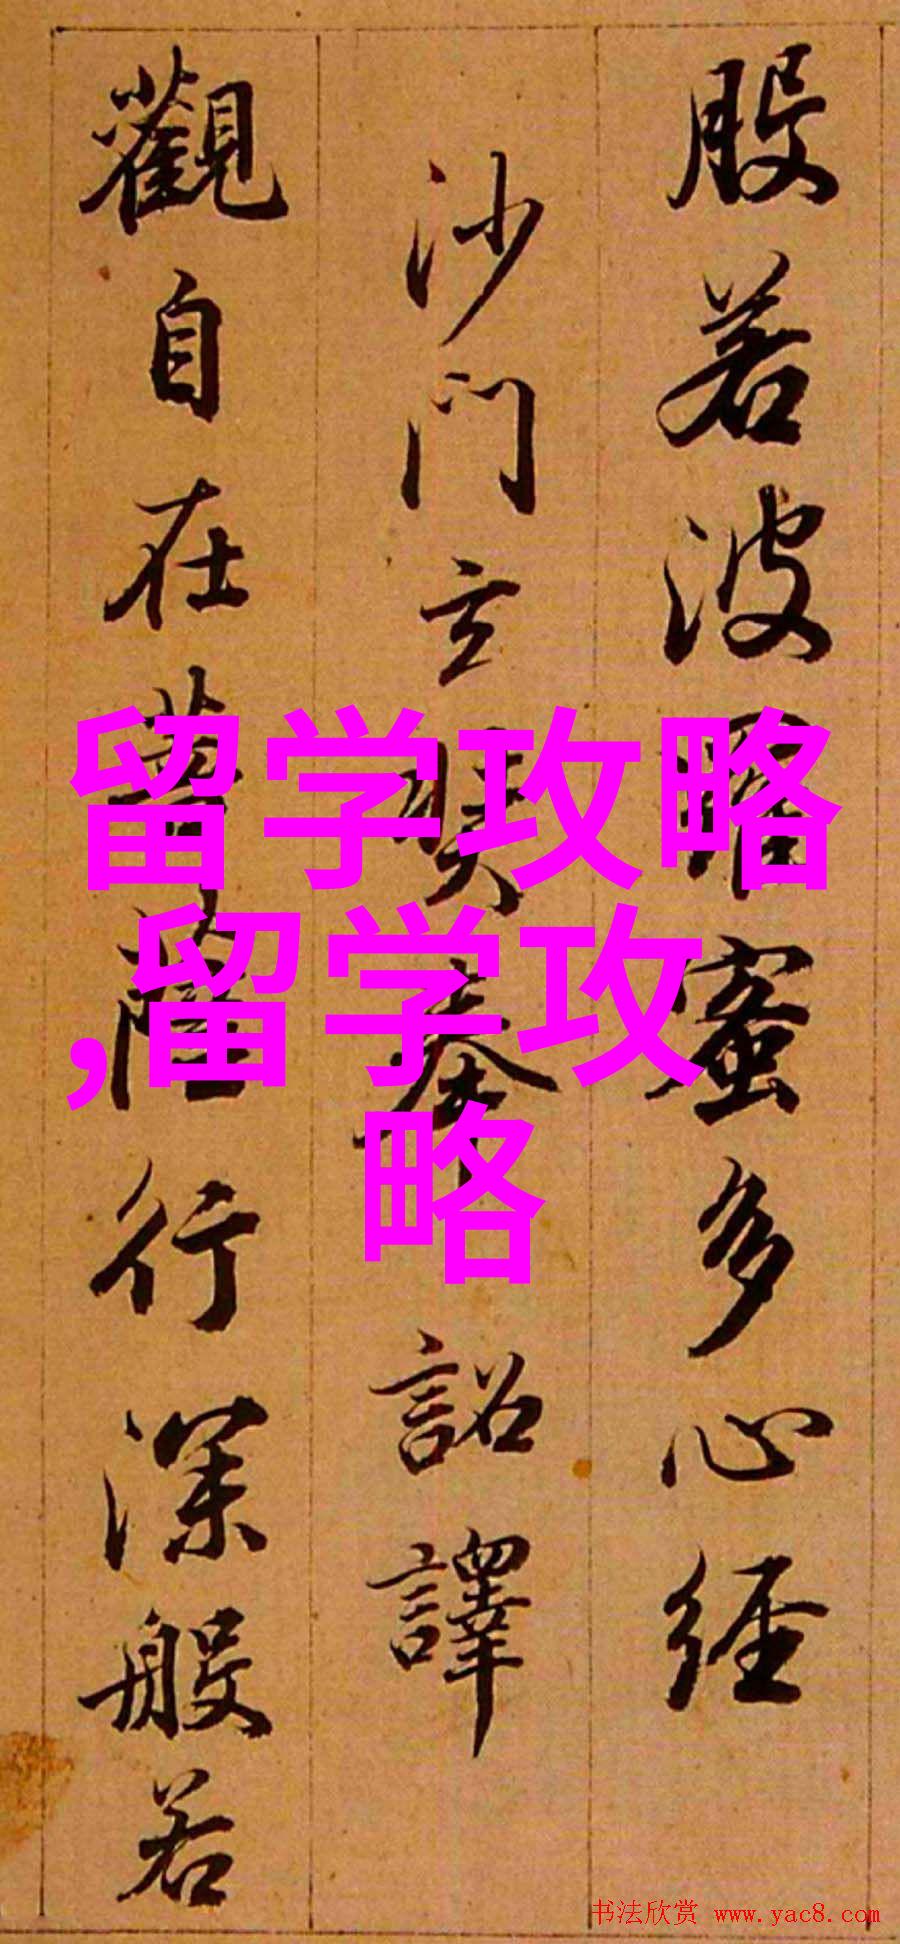 般若波羅蜜多心経
沙門玄奘奉詔譯
觀自在菩薩行深般若
留学攻略
,留学攻
略
书法欣赏 www.yac8.com